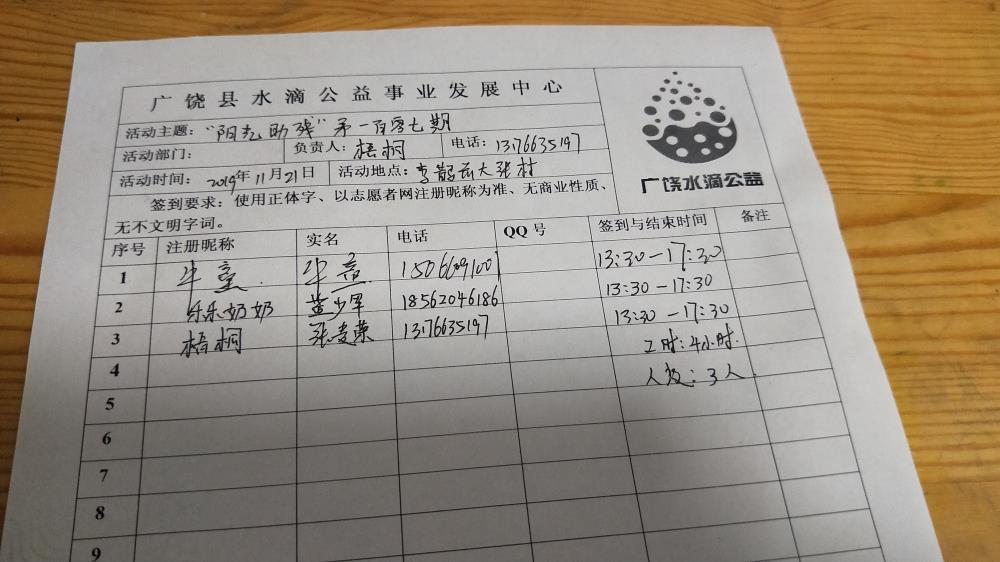 广饶县水滴公益事业发展中心
活动主题：“阳光助残”第一百零七期
活动部门： 负责人：梧桐 电话：13176635197
活动时间：2019年11月21日 活动地点：李鹊镇大张村
签到要求：使用正体字、以志愿者网注册昵称为准、无商业性质、
无不文明字词。
广饶水滴公益
序号 注册昵称 实名 电话 QQ号 签到与结束时间 备注
1 13:30-17:30
2 乐乐奶奶 18562046186 13:30-17:30
3 梧桐 13176635197 13:30-17:30
4 工时：4小时.
5 人数：3人.
6
7
8
9